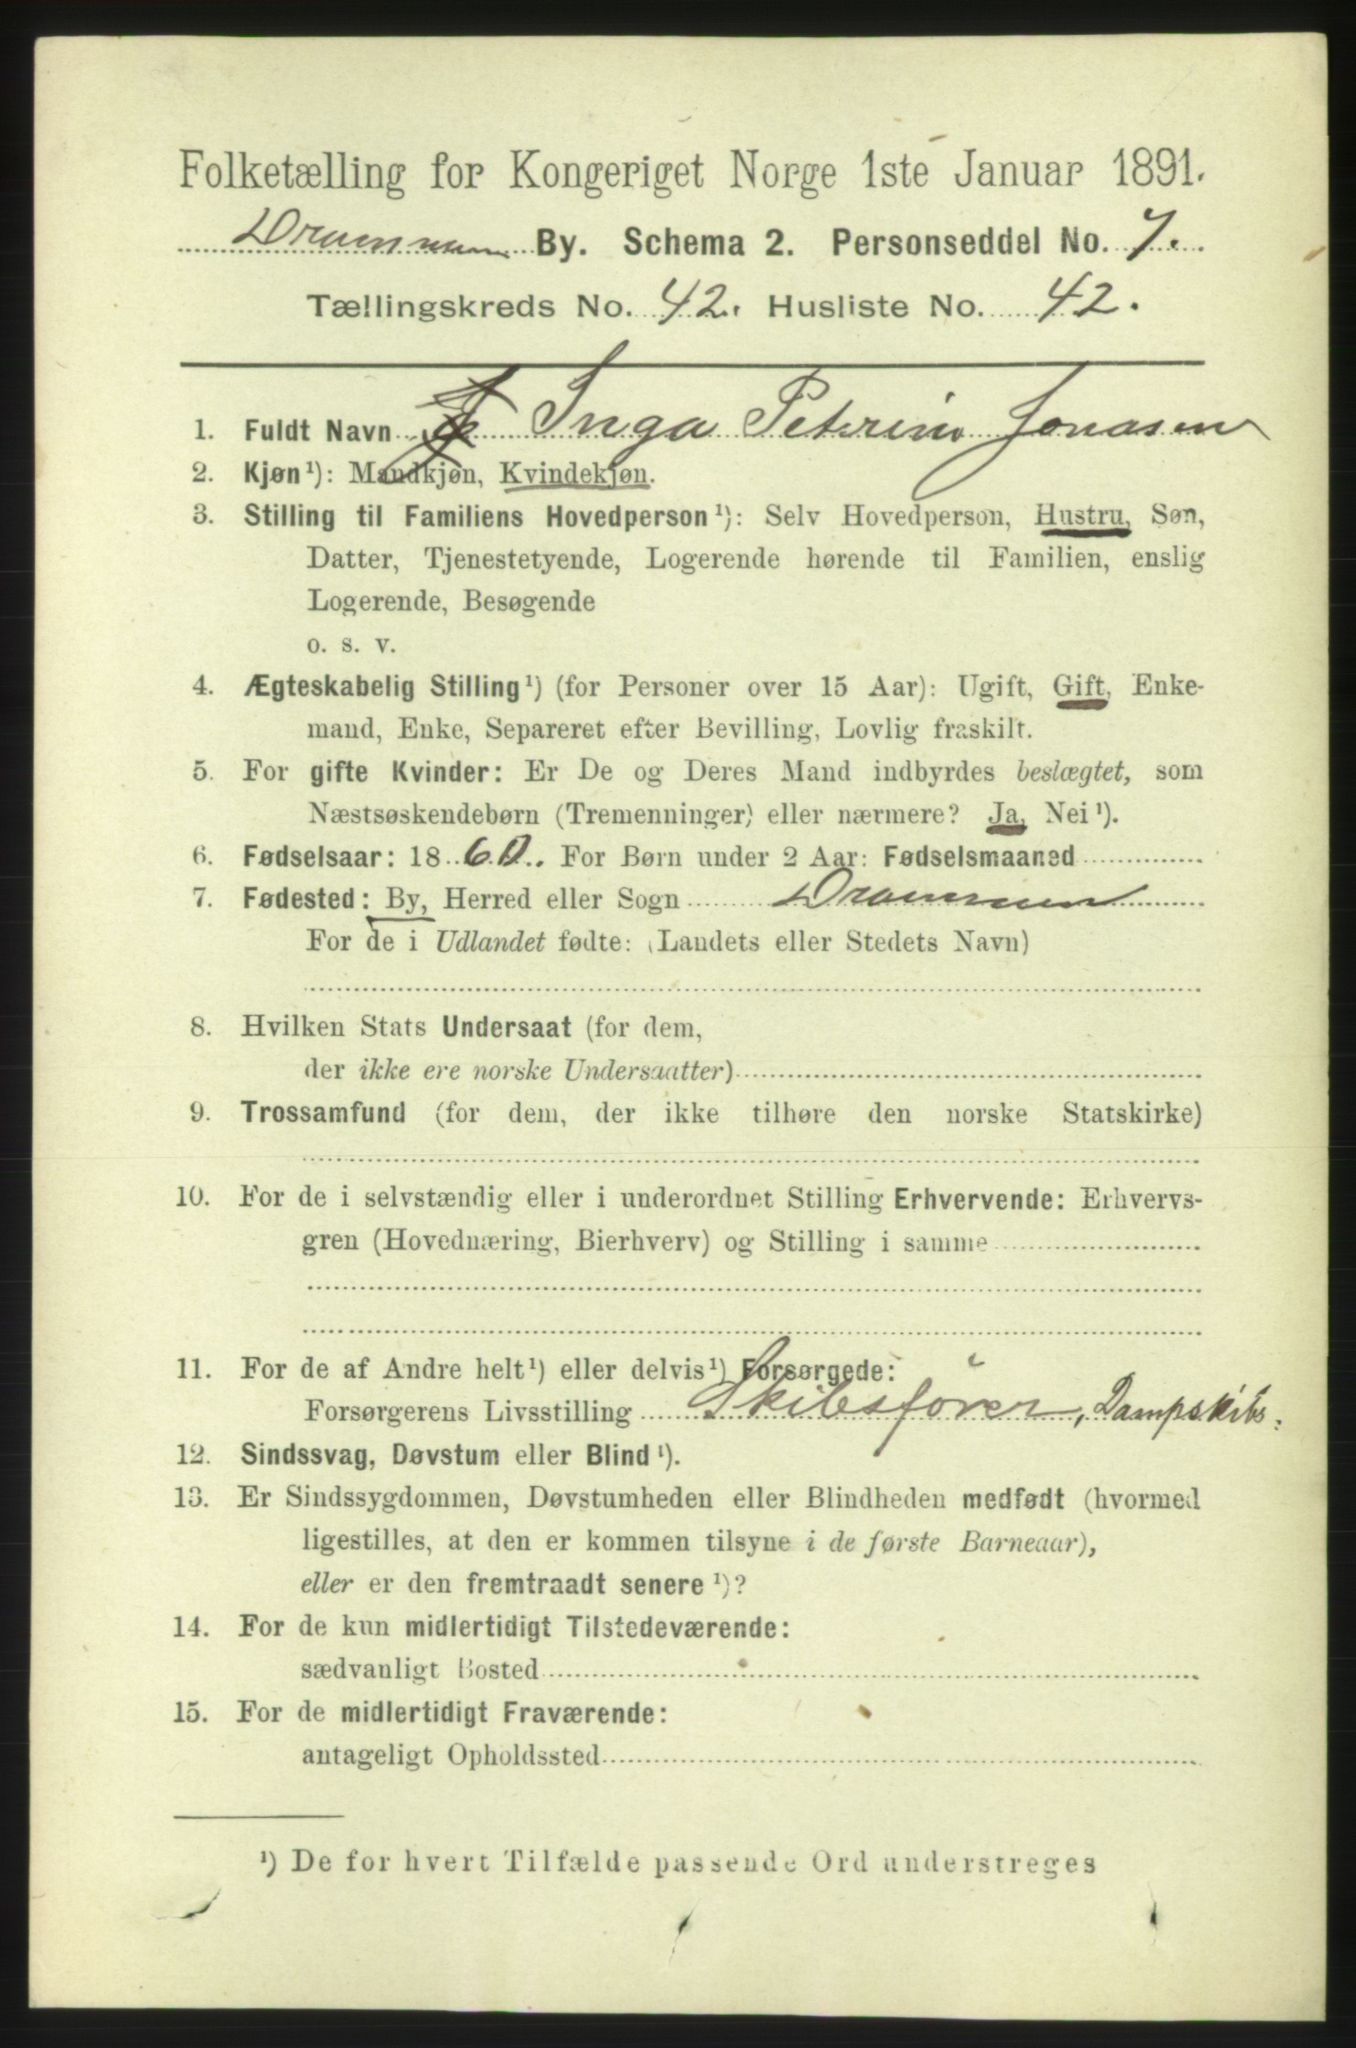 Folketælling for Kongeriget Norge 1ste Januar 1891.
Drammen By. Schema 2. Personseddel No. 7.
Tællingskreds No. 42. Husliste No. 42.
1. Fuldt Navn Inga Petrine Jonasen
2. Kjøn¹): Mandkjøn, Kvindekjøn.
3. Stilling til Familiens Hovedperson¹): Selv Hovedperson, Hustru, Søn,
Datter, Tjenestetyende, Logerende hørende til Familien, enslig
Logerende, Besøgende
o. s. v.
4. Ægteskabelig Stilling¹) (for Personer over 15 Aar): Ugift, Gift, Enke-
mand, Enke, Separeret efter Bevilling, Lovlig fraskilt.
5. For gifte Kvinder: Er De og Deres Mand indbyrdes beslægtet, som
Næstsøskendebørn (Tremenninger) eller nærmere? Ja, Nei¹).
6. Fødselsaar: 1860. For Børn under 2 Aar: Fødselsmaaned
7. Fødested: By, Herred eller Sogn Drammen
For de i Udlandet fødte: (Landets eller Stedets Navn)
8. Hvilken Stats Undersaat (for dem,
der ikke ere norske Undersaatter)
9. Trossamfund (for dem, der ikke tilhøre den norske Statskirke)
10. For de i selvstændig eller i underordnet Stilling Erhvervende: Erhvervs-
gren (Hovednæring, Bierhverv) og Stilling i samme
11. For de af Andre helt¹) eller delvis¹) Forsørgede:
Forsørgerens Livsstilling Skibsfører, Dampskibs.
12. Sindssvag, Døvstum eller Blind¹).
13. Er Sindssygdommen, Døvstumheden eller Blindheden medfødt (hvormed
ligestilles, at den er kommen tilsyne i de første Barneaar),
eller er den fremtraadt senere¹)?
14. For de kun midlertidigt Tilstedeværende:
sædvanligt Bosted
15. For de midlertidigt Fraværende:
antageligt Opholdssted
¹) De for hvert Tilfælde passende Ord understreges